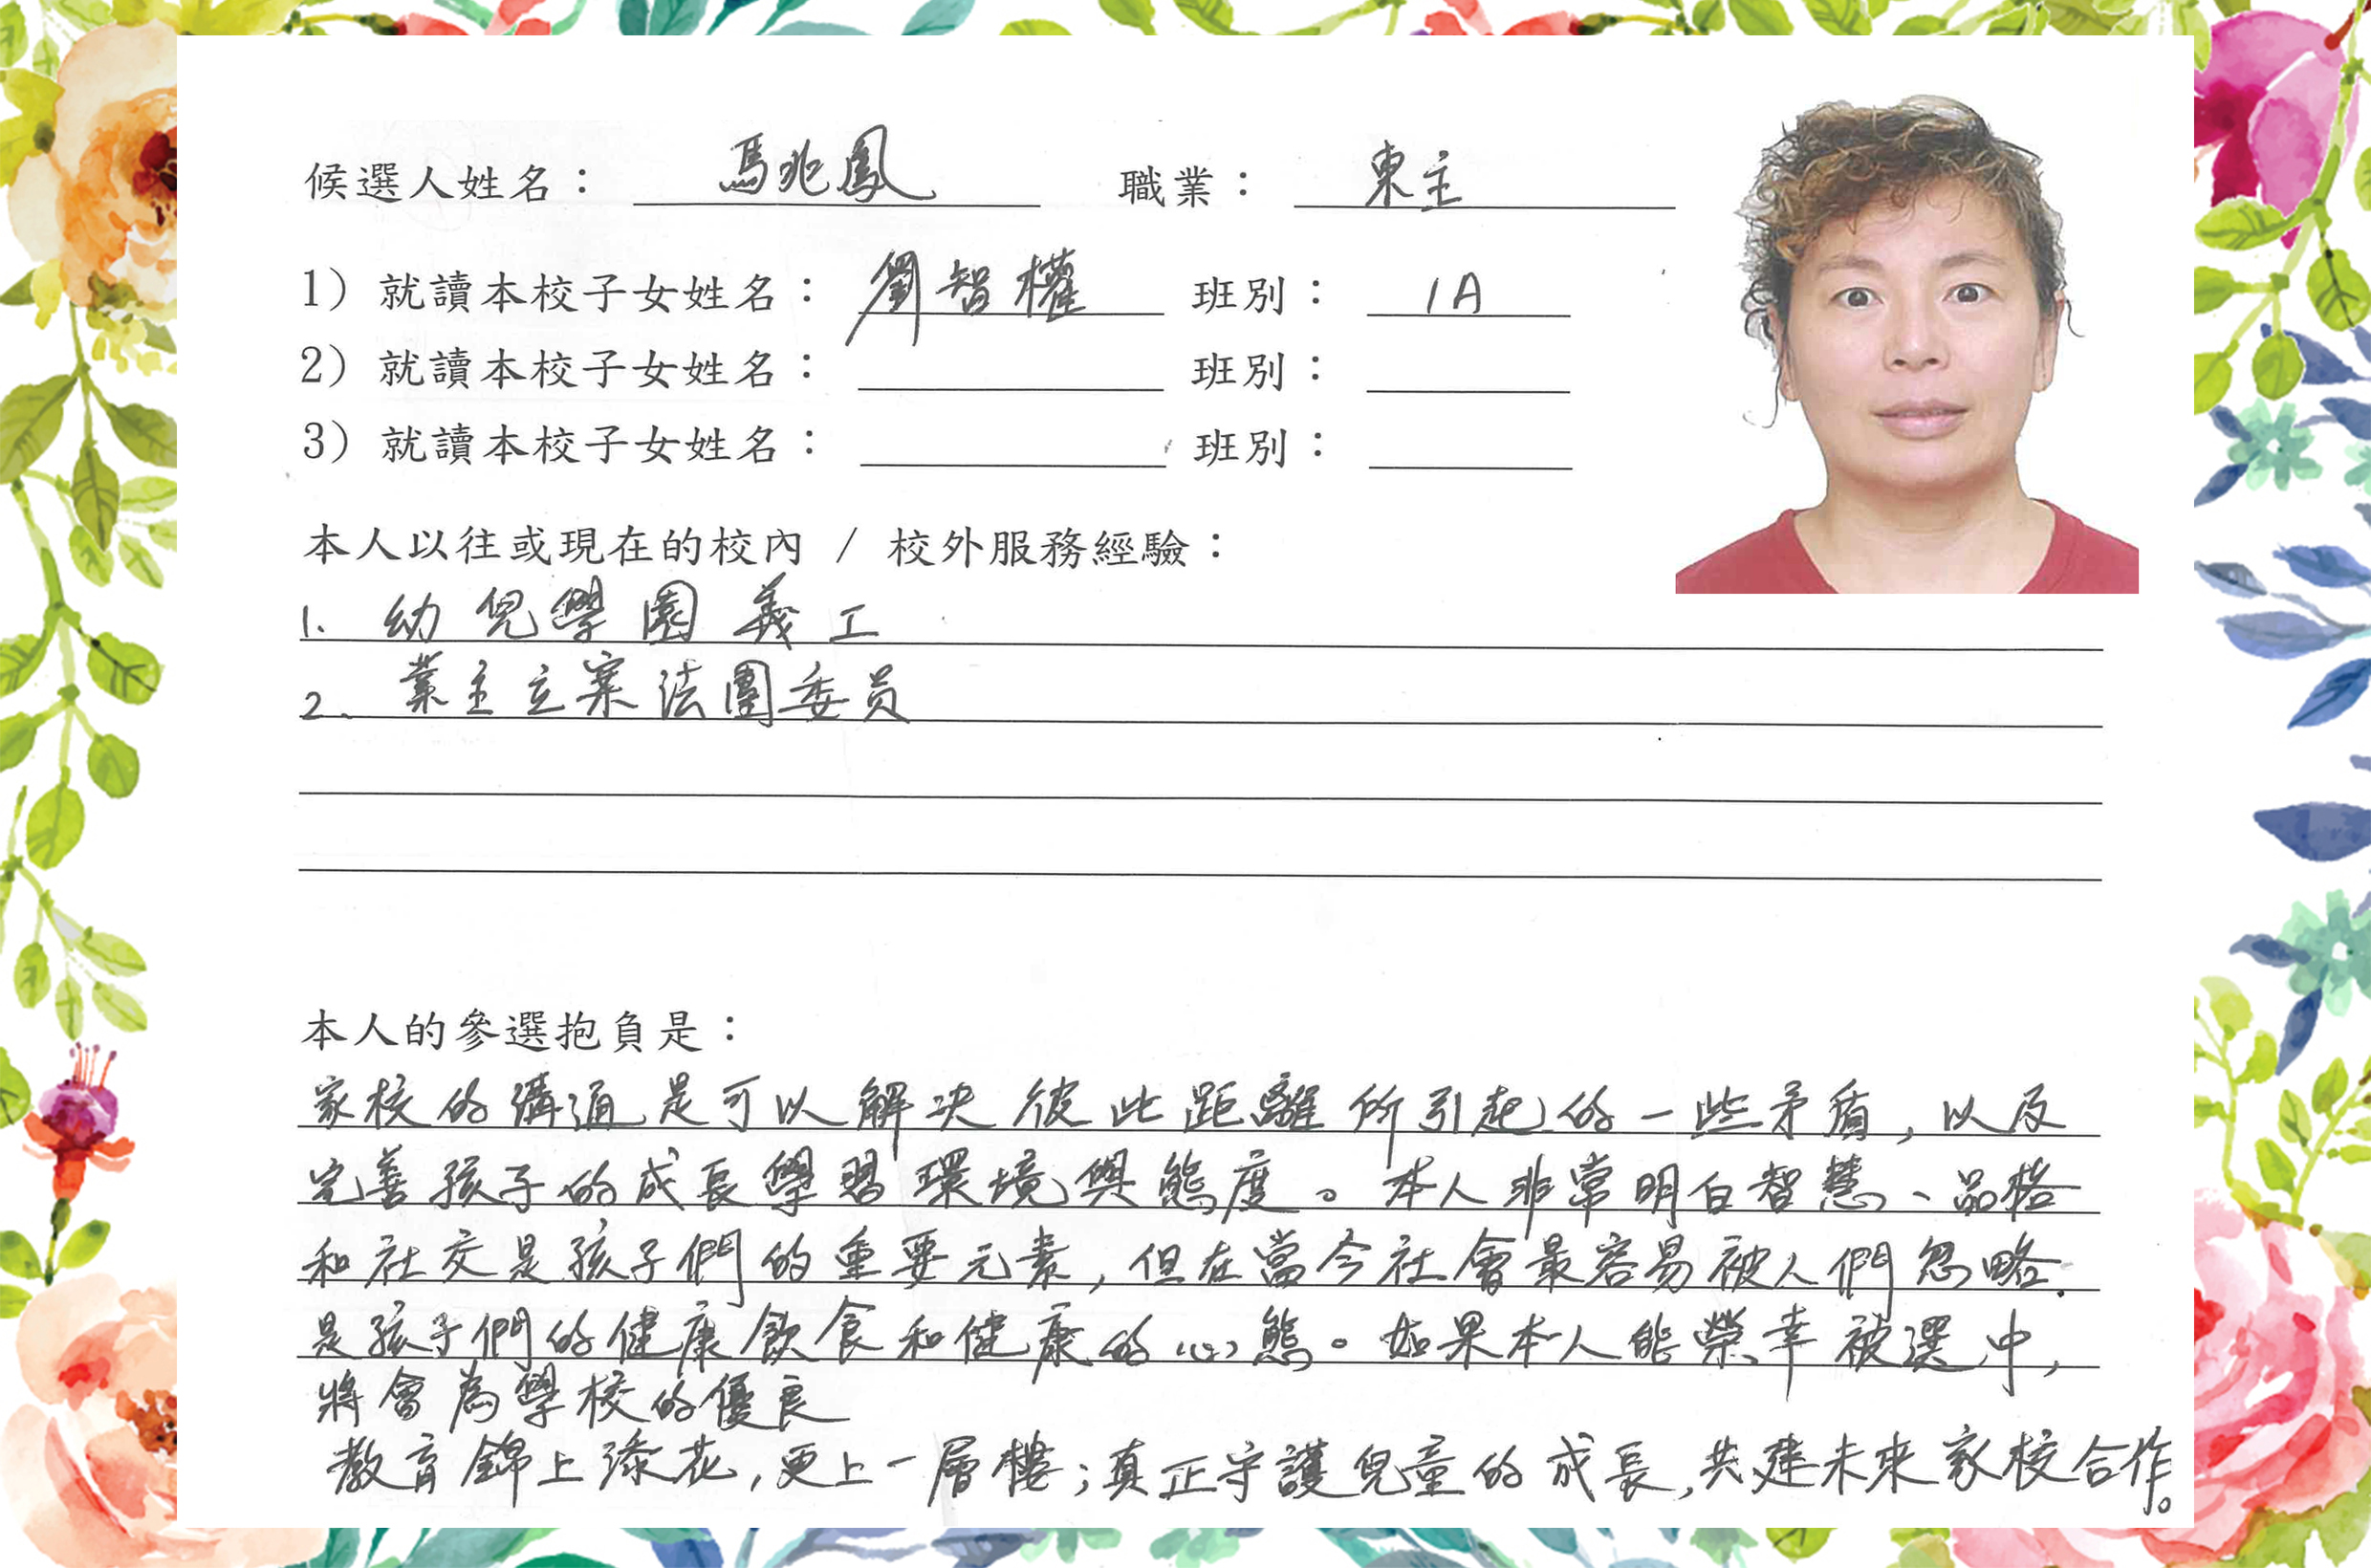 候選人姓名： 馬兆鳳 職業： 東主
1) 就讀本校子女姓名： 劉智權 班別： 1A
2) 就讀本校子女姓名： 班別：
3) 就讀本校子女姓名： 班別：
本人以往或現在的校內 / 校外服務經驗：
1. 幼兒學園義工
2. 業主立案法團委員
本人的參選抱負是：
家校的溝通是可以解決彼此距離所引起的一些矛盾，以及
完善孩子的成長學習環境與態度。本人非常明白智慧、品格
和社交是孩子們的重要元素，但在當今社會最容易被人們忽略.
是孩子們的健康飲食和健康的心態。如果本人能榮幸被選中，
將會為學校的優良
教育錦上添花，更上一層樓；真正守護兒童的成長，共建未來家校合作。